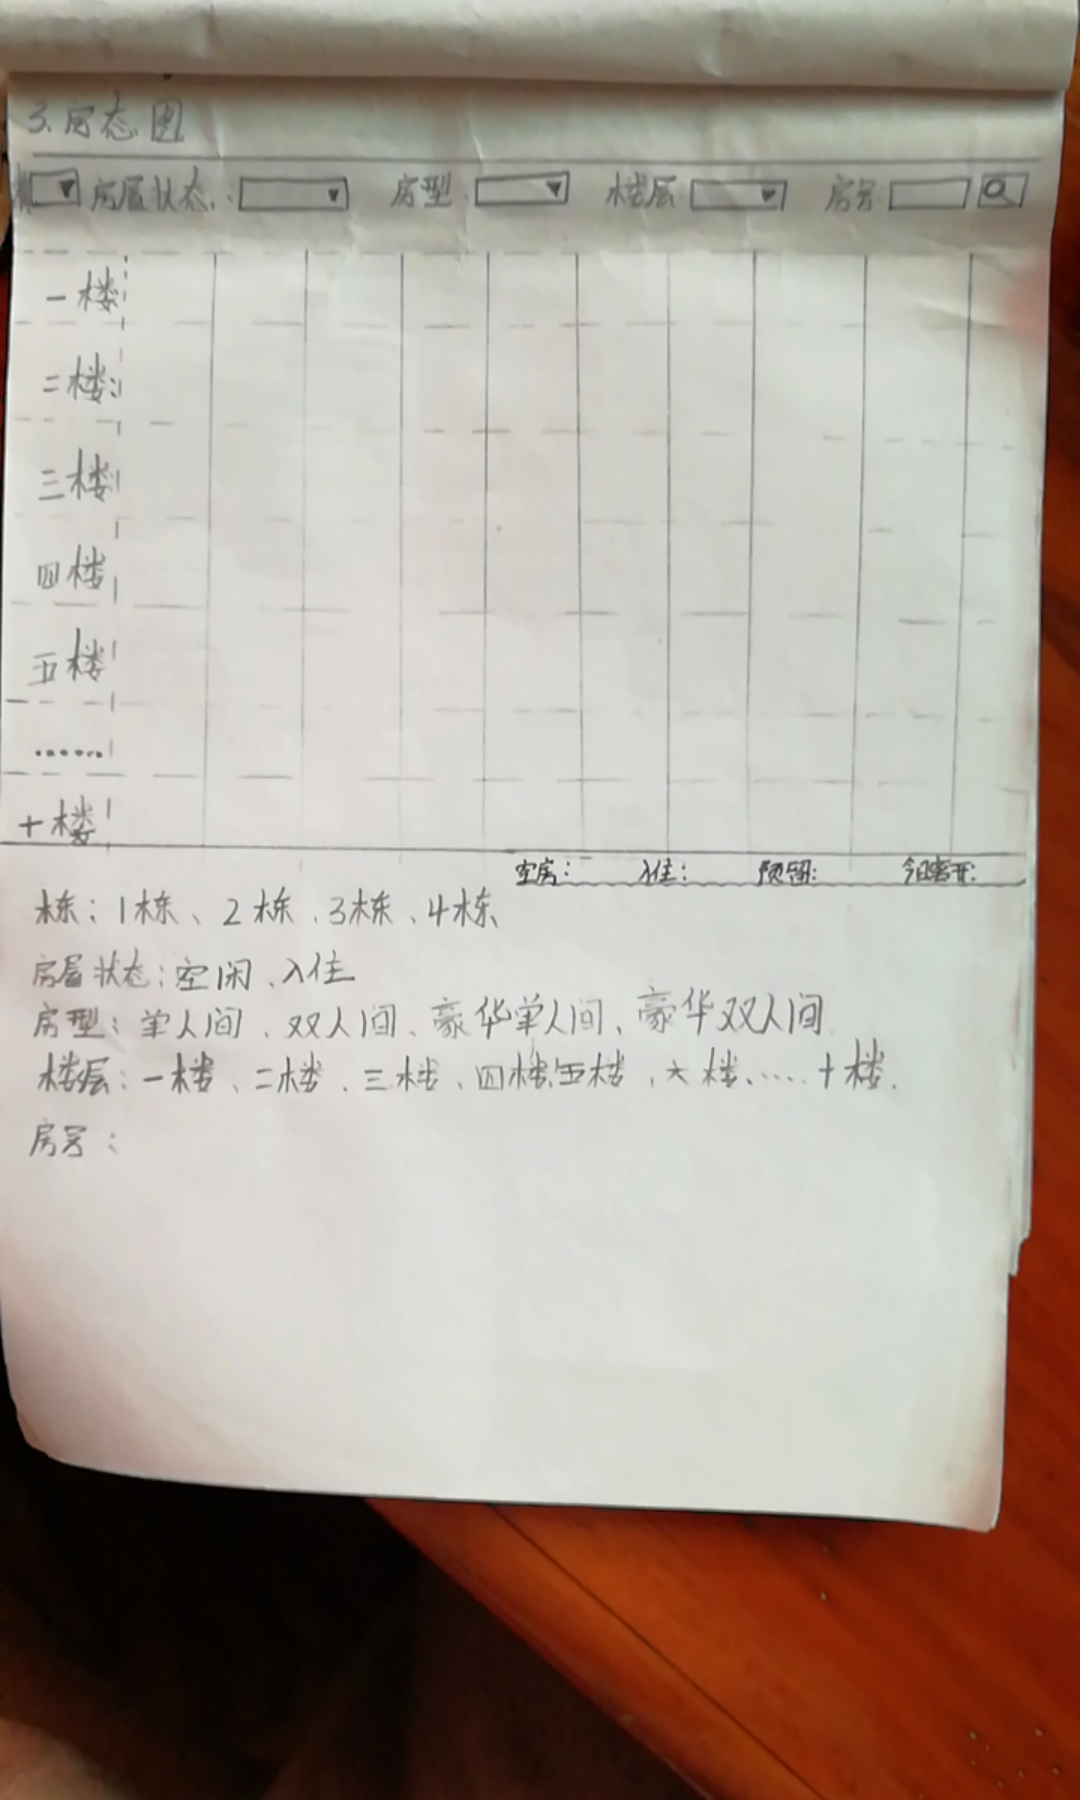 3.房态图
房屋状态: 房型: 楼层: 房号:
一楼
二楼:
三楼
四楼
五楼
......
十楼
空房: 入住: 预留: 今日离开:
栋:1栋、2栋、3栋、4栋
房屋状态:空闲、入住
房型:单人间、双人间、豪华单人间、豪华双人间
楼层:一楼、二楼、三楼、四楼、五楼、六楼、....十楼.
房号: